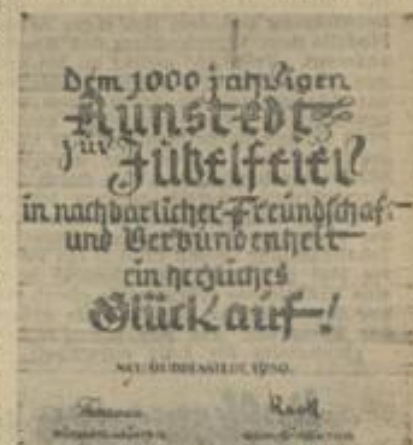 Dem 1000 jährigen
Runstedt
zur Jubelfeier
in nachbarlicher Freundschaft
und Verbundenheit
ein herzliches
Glück auf!
1950.